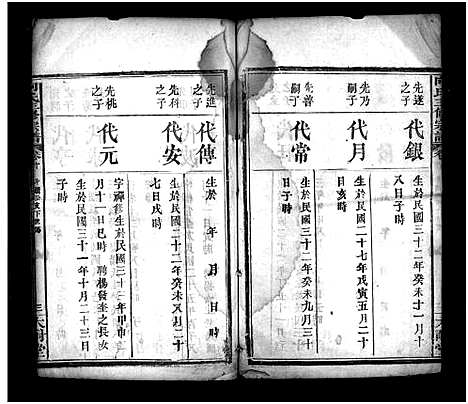 先遂
之子
代銀
生於民國三十二年癸未十一月十
八日子時
先乃
嗣子
代月
生於民國二十七年戊寅五月二十
日亥時
先普
嗣子
代常
生於民國三十二年癸未九月三十
日子時
先進
之子
代傳
生於 年 月 日 時
先科
之子
代安
生於民國三十二年癸未又月二十
七日戌時
先桃
之子
代元
字禪 生於民國三十三年甲申
月十一日巳時聘楊發奎之長女
生於民國三十一年十月二十三日
子時